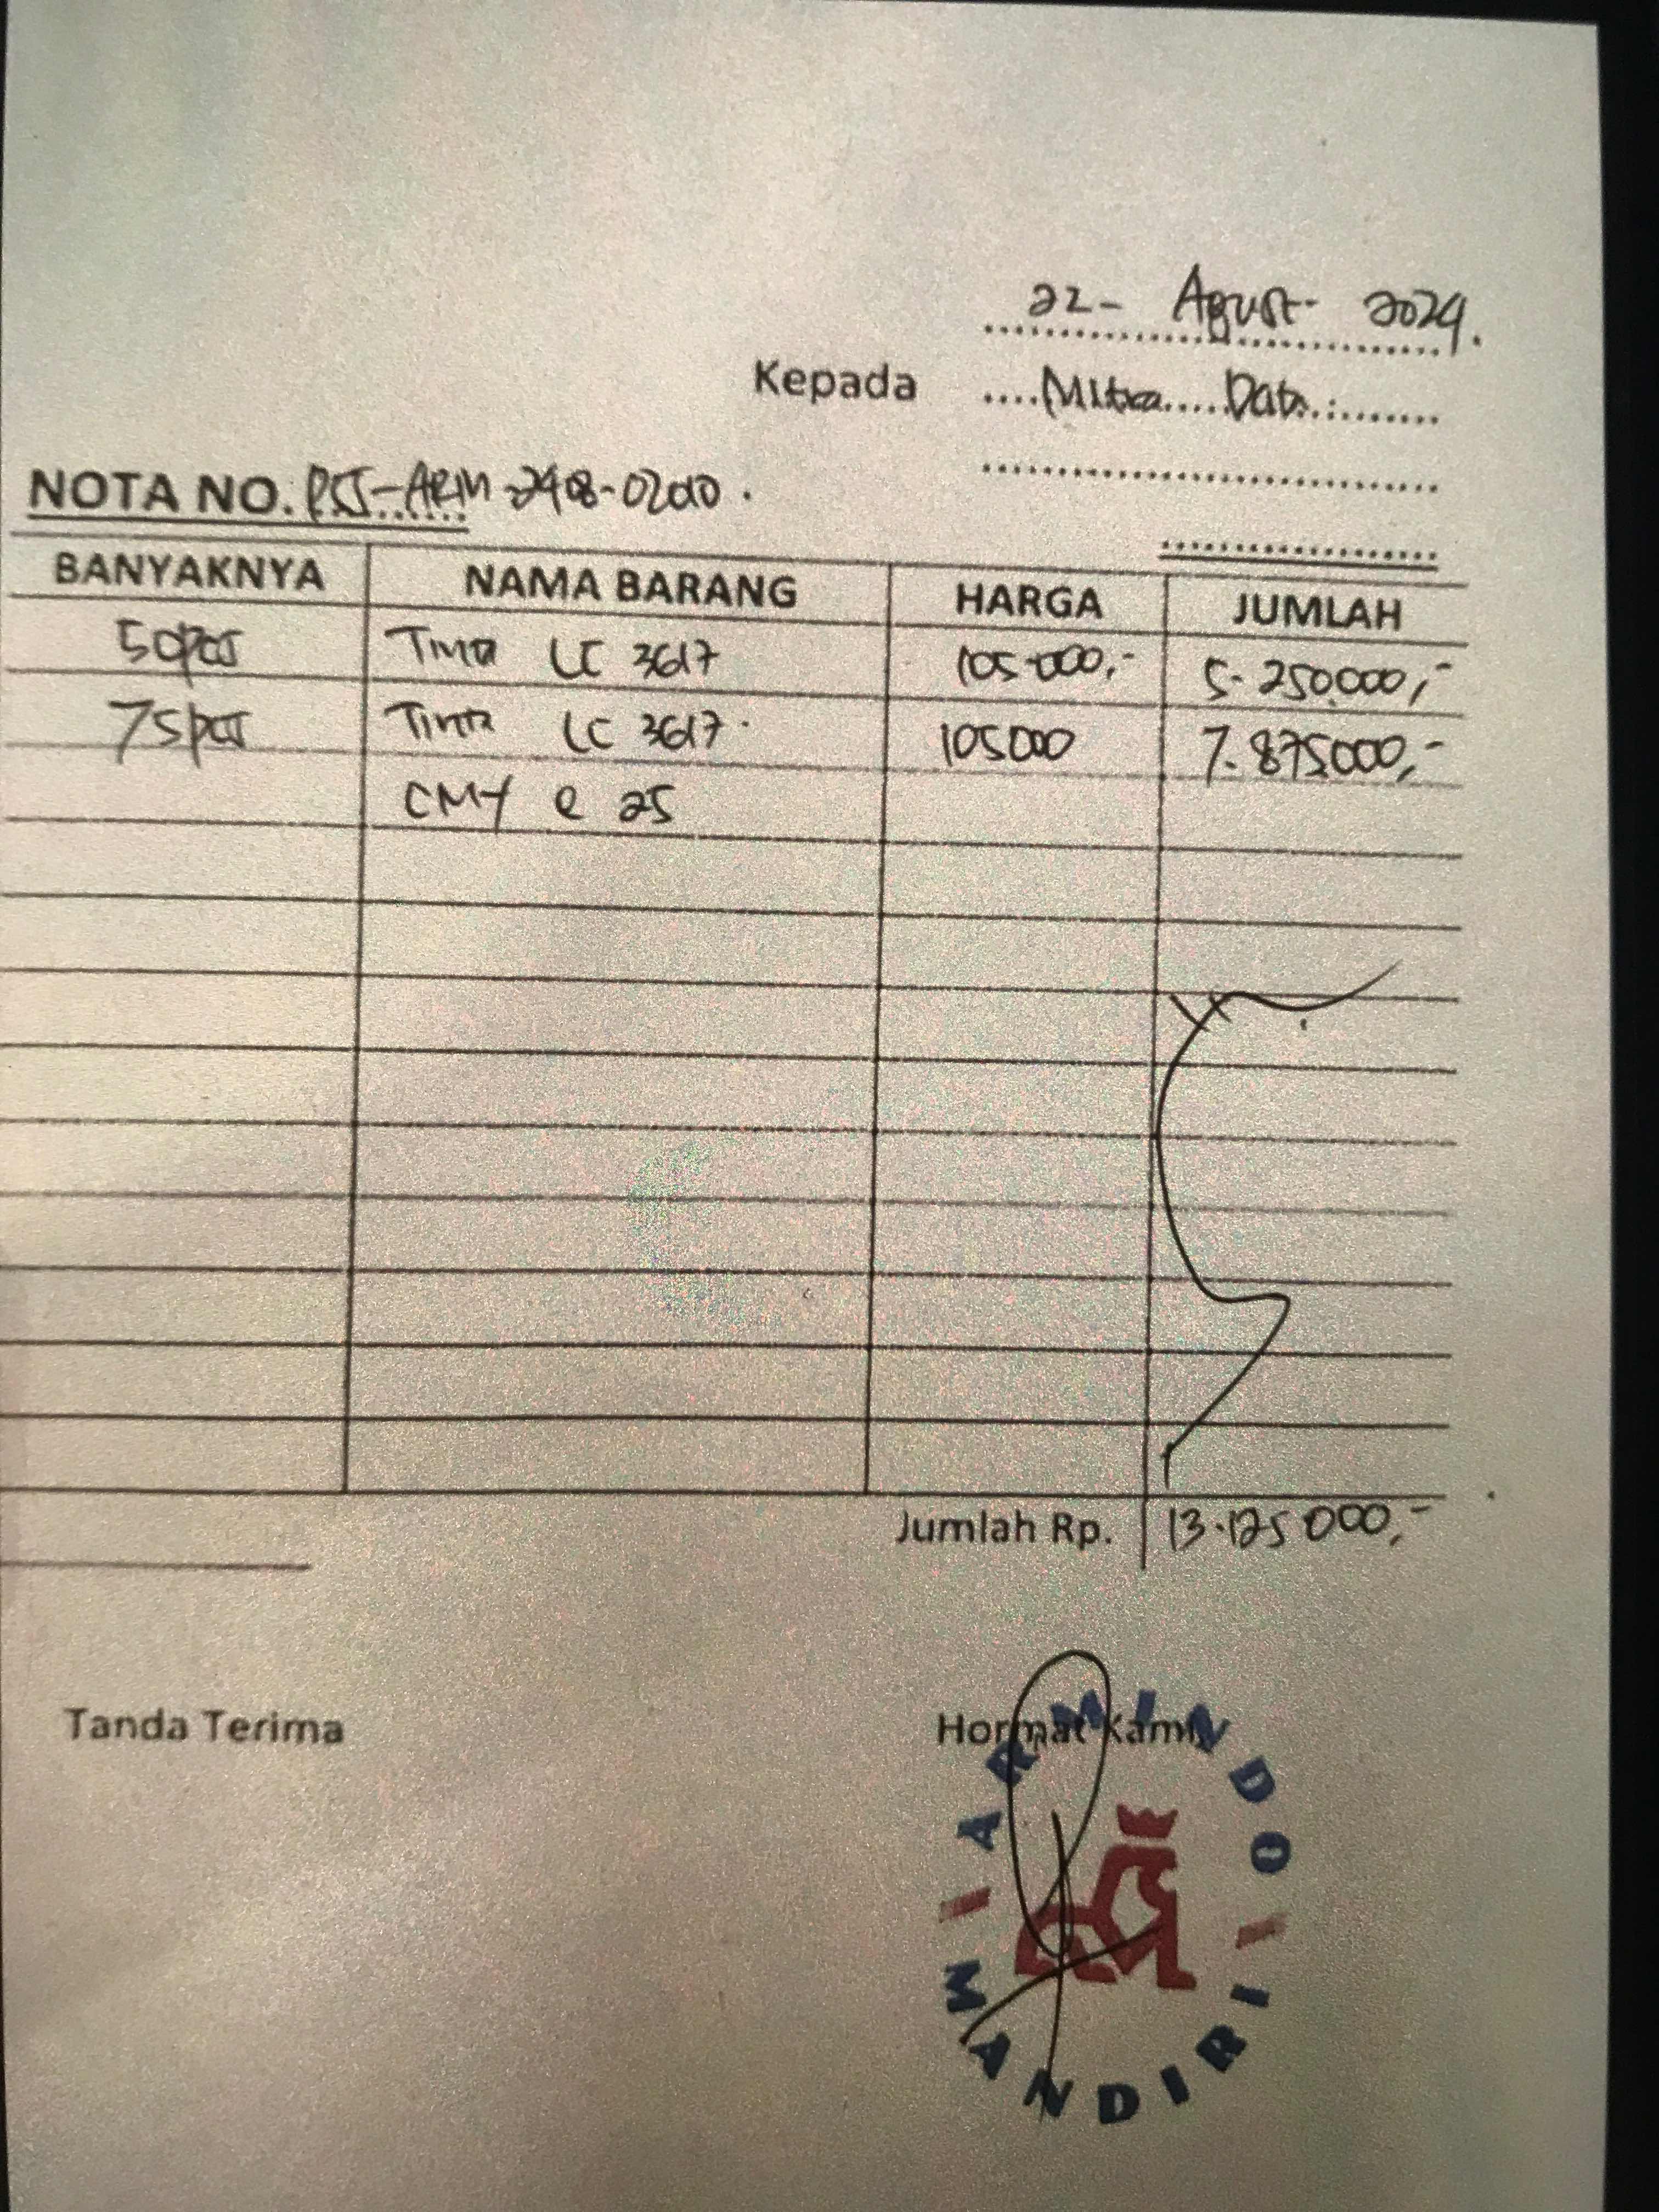 22 - Agust - 2024.
Kepada Mitra Data
NOTA NO. PSJ-ARM-2408-02010.
BANYAKNYA NAMA BARANG HARGA JUMLAH
50pcs Tinta LC 3617 105.000,- 5.250.000,-
75pcs Tinta LC 3617. 105000 7.875000,-
CMY @ 25
Jumlah Rp. 13.125 000,-
Tanda Terima Hormat Kami
ARMINDO
MANDIRI